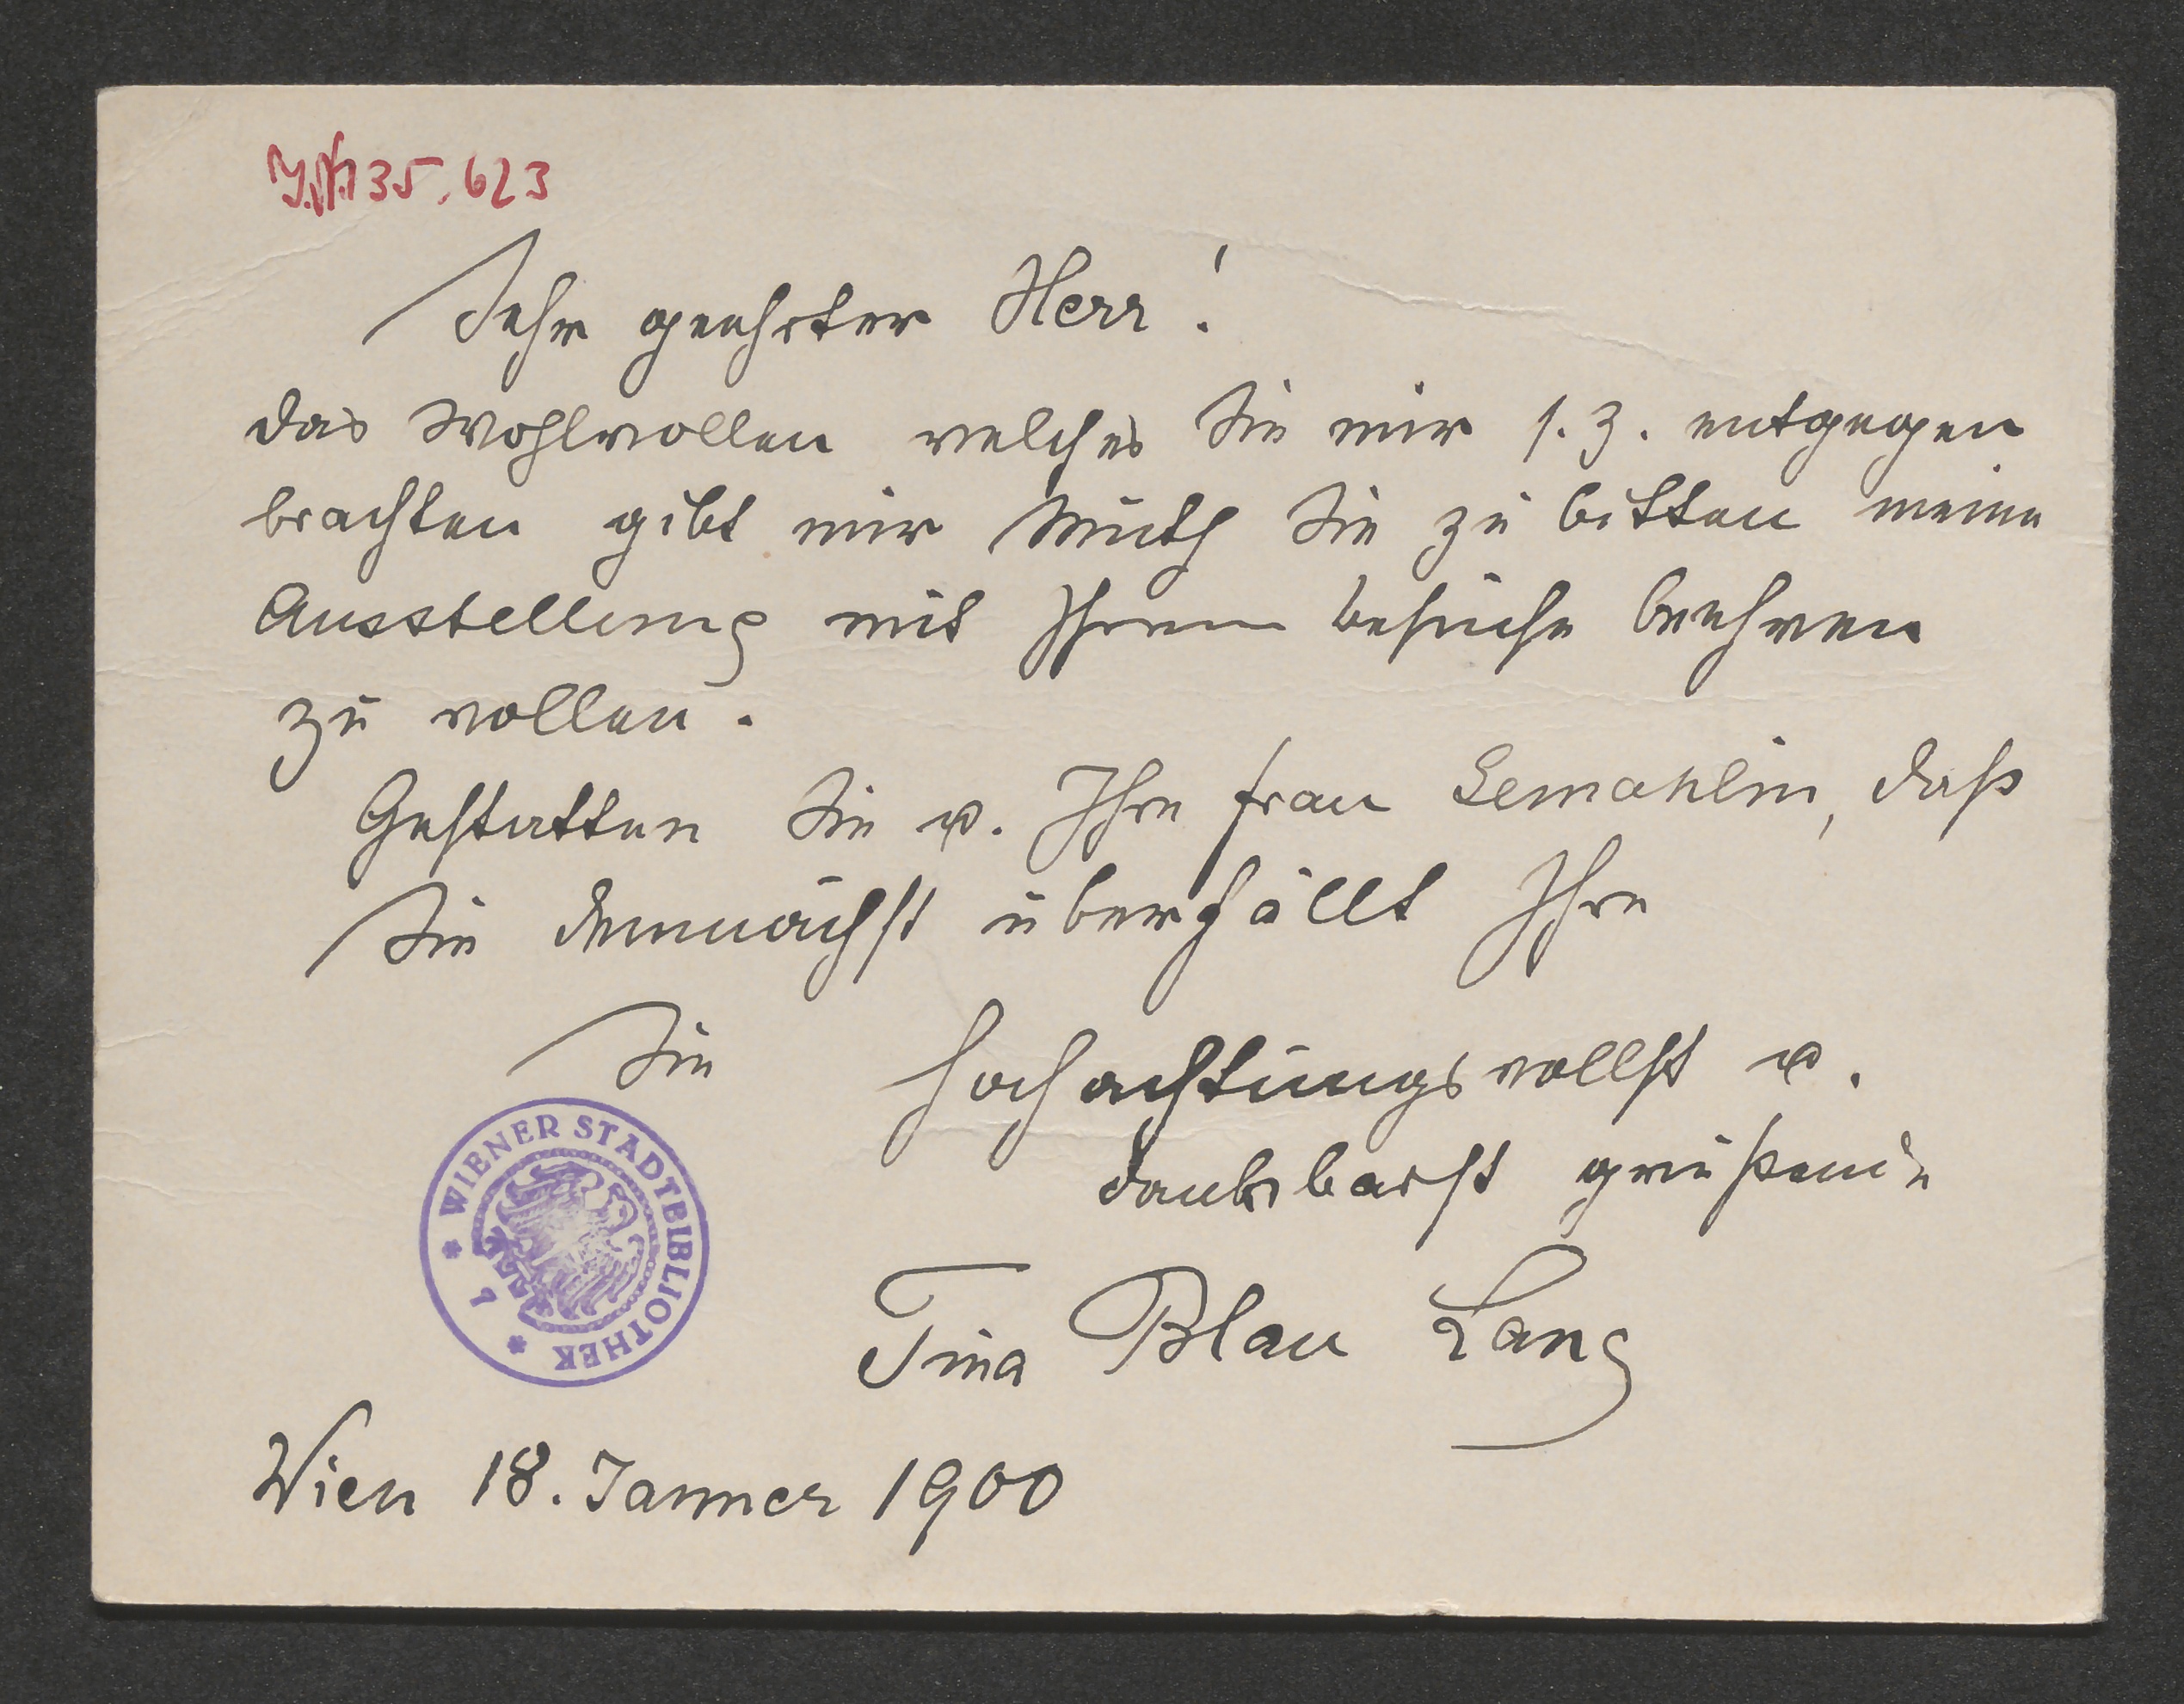 J.N. 135.623
Sehr geehrter Herr!
das Wohlwollen welches Sie mir s. Z. entgegen
brachten gibt mir Muth Sie zu bitten meine
Ausstellung mit Ihrem besuche beehren
zu wollen.
Gestatten Sie u. Ihre frau Gemahlin, daß
Sie demnächst überfällt Ihre
Sie hochachtungsvollst u.
dankbarst grüßende
Tina Blau Lang
WIENER STADTBIBLIOTHEK
1
Wien 18. Janner 1900